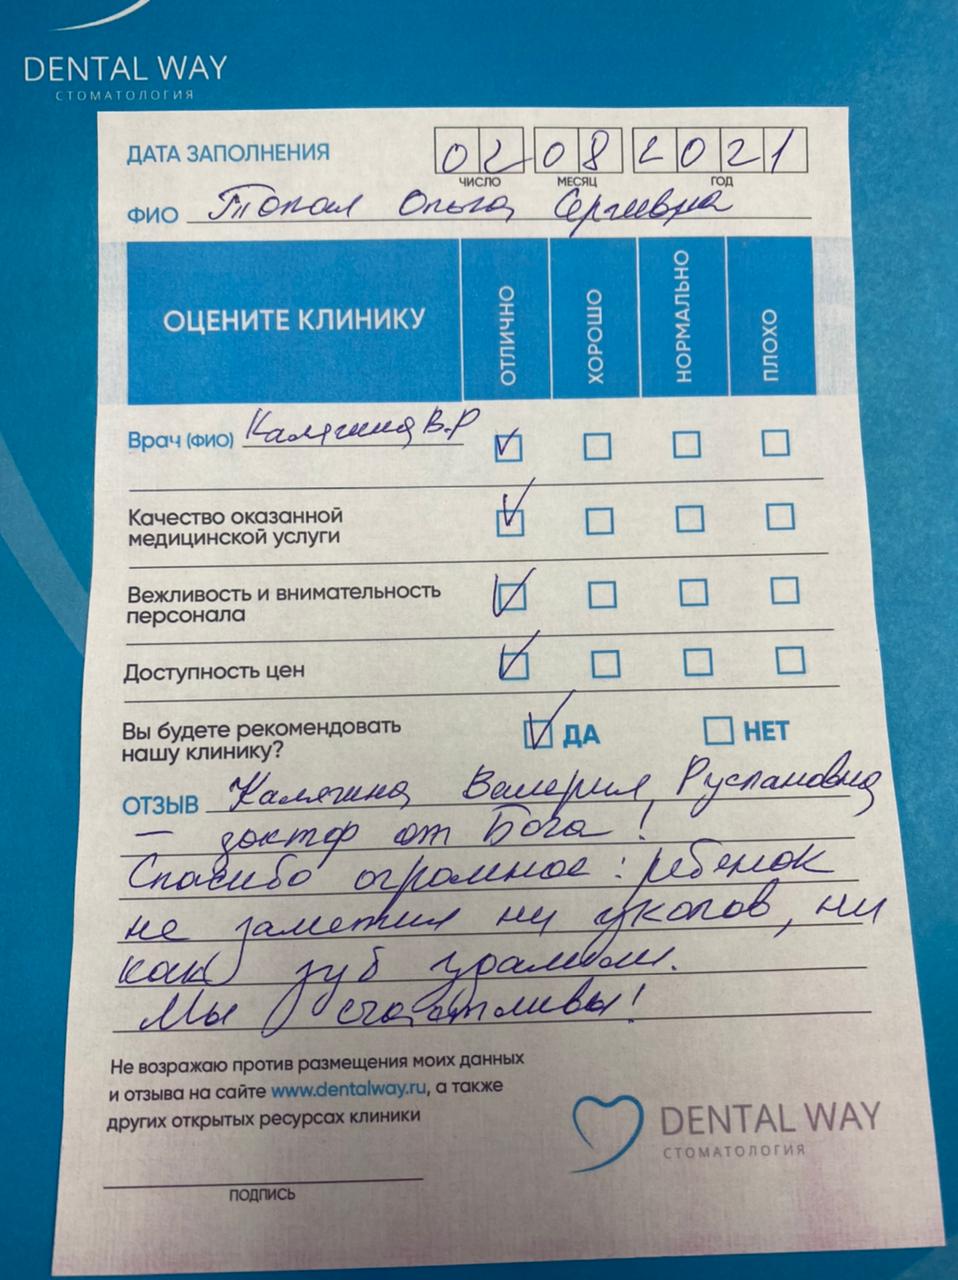 DENTAL WAY
СТОМАТОЛОГИЯ
ДАТА ЗАПОЛНЕНИЯ 02 08 2021
ЧИСЛО МЕСЯЦ ГОД
ФИО Топал Ольга Сергеевна
ОЦЕНИТЕ КЛИНИКУ ОТЛИЧНО ХОРОШО НОРМАЛЬНО ПЛОХО
Врач (ФИО) Калягина В.Р
Качество оказанной
медицинской услуги
Вежливость и внимательность
персонала
Доступность цен
Вы будете рекомендовать
нашу клинику? ДА НЕТ
ОТЗЫВ Калягина Валерия Руслановна
– доктор от Бога!
Спасибо огромное: ребенок
не заметил ни уколов, ни
как зуб удалили.
Мы счастливы!
Не возражаю против размещения моих данных
и отзыва на сайте www.dentalway.ru, а также
других открытых ресурсах клиники
DENTAL WAY
СТОМАТОЛОГИЯ
ПОДПИСЬ